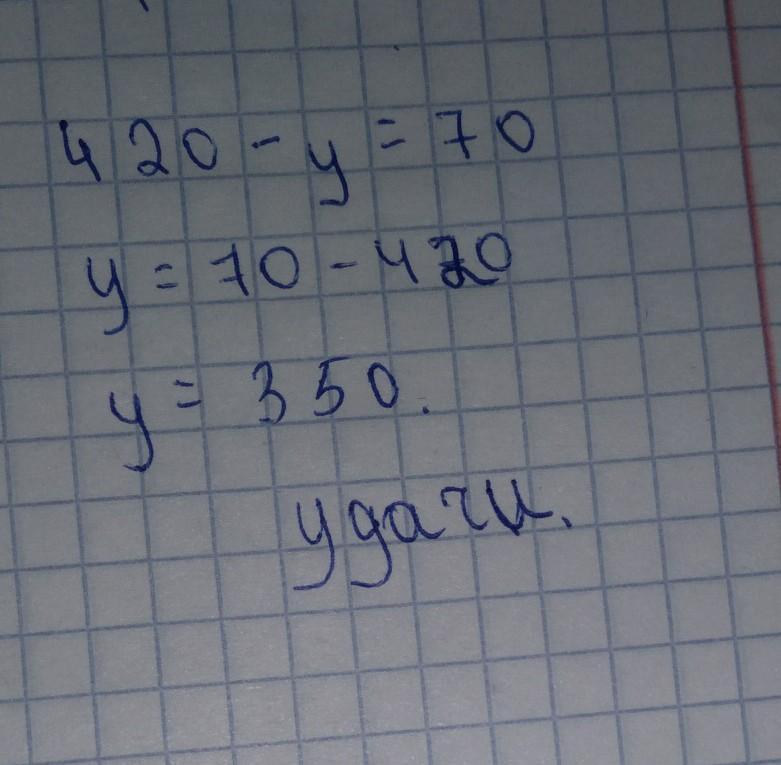 420 - y = 70
y = 70 - 420
y = 350.
удачи.